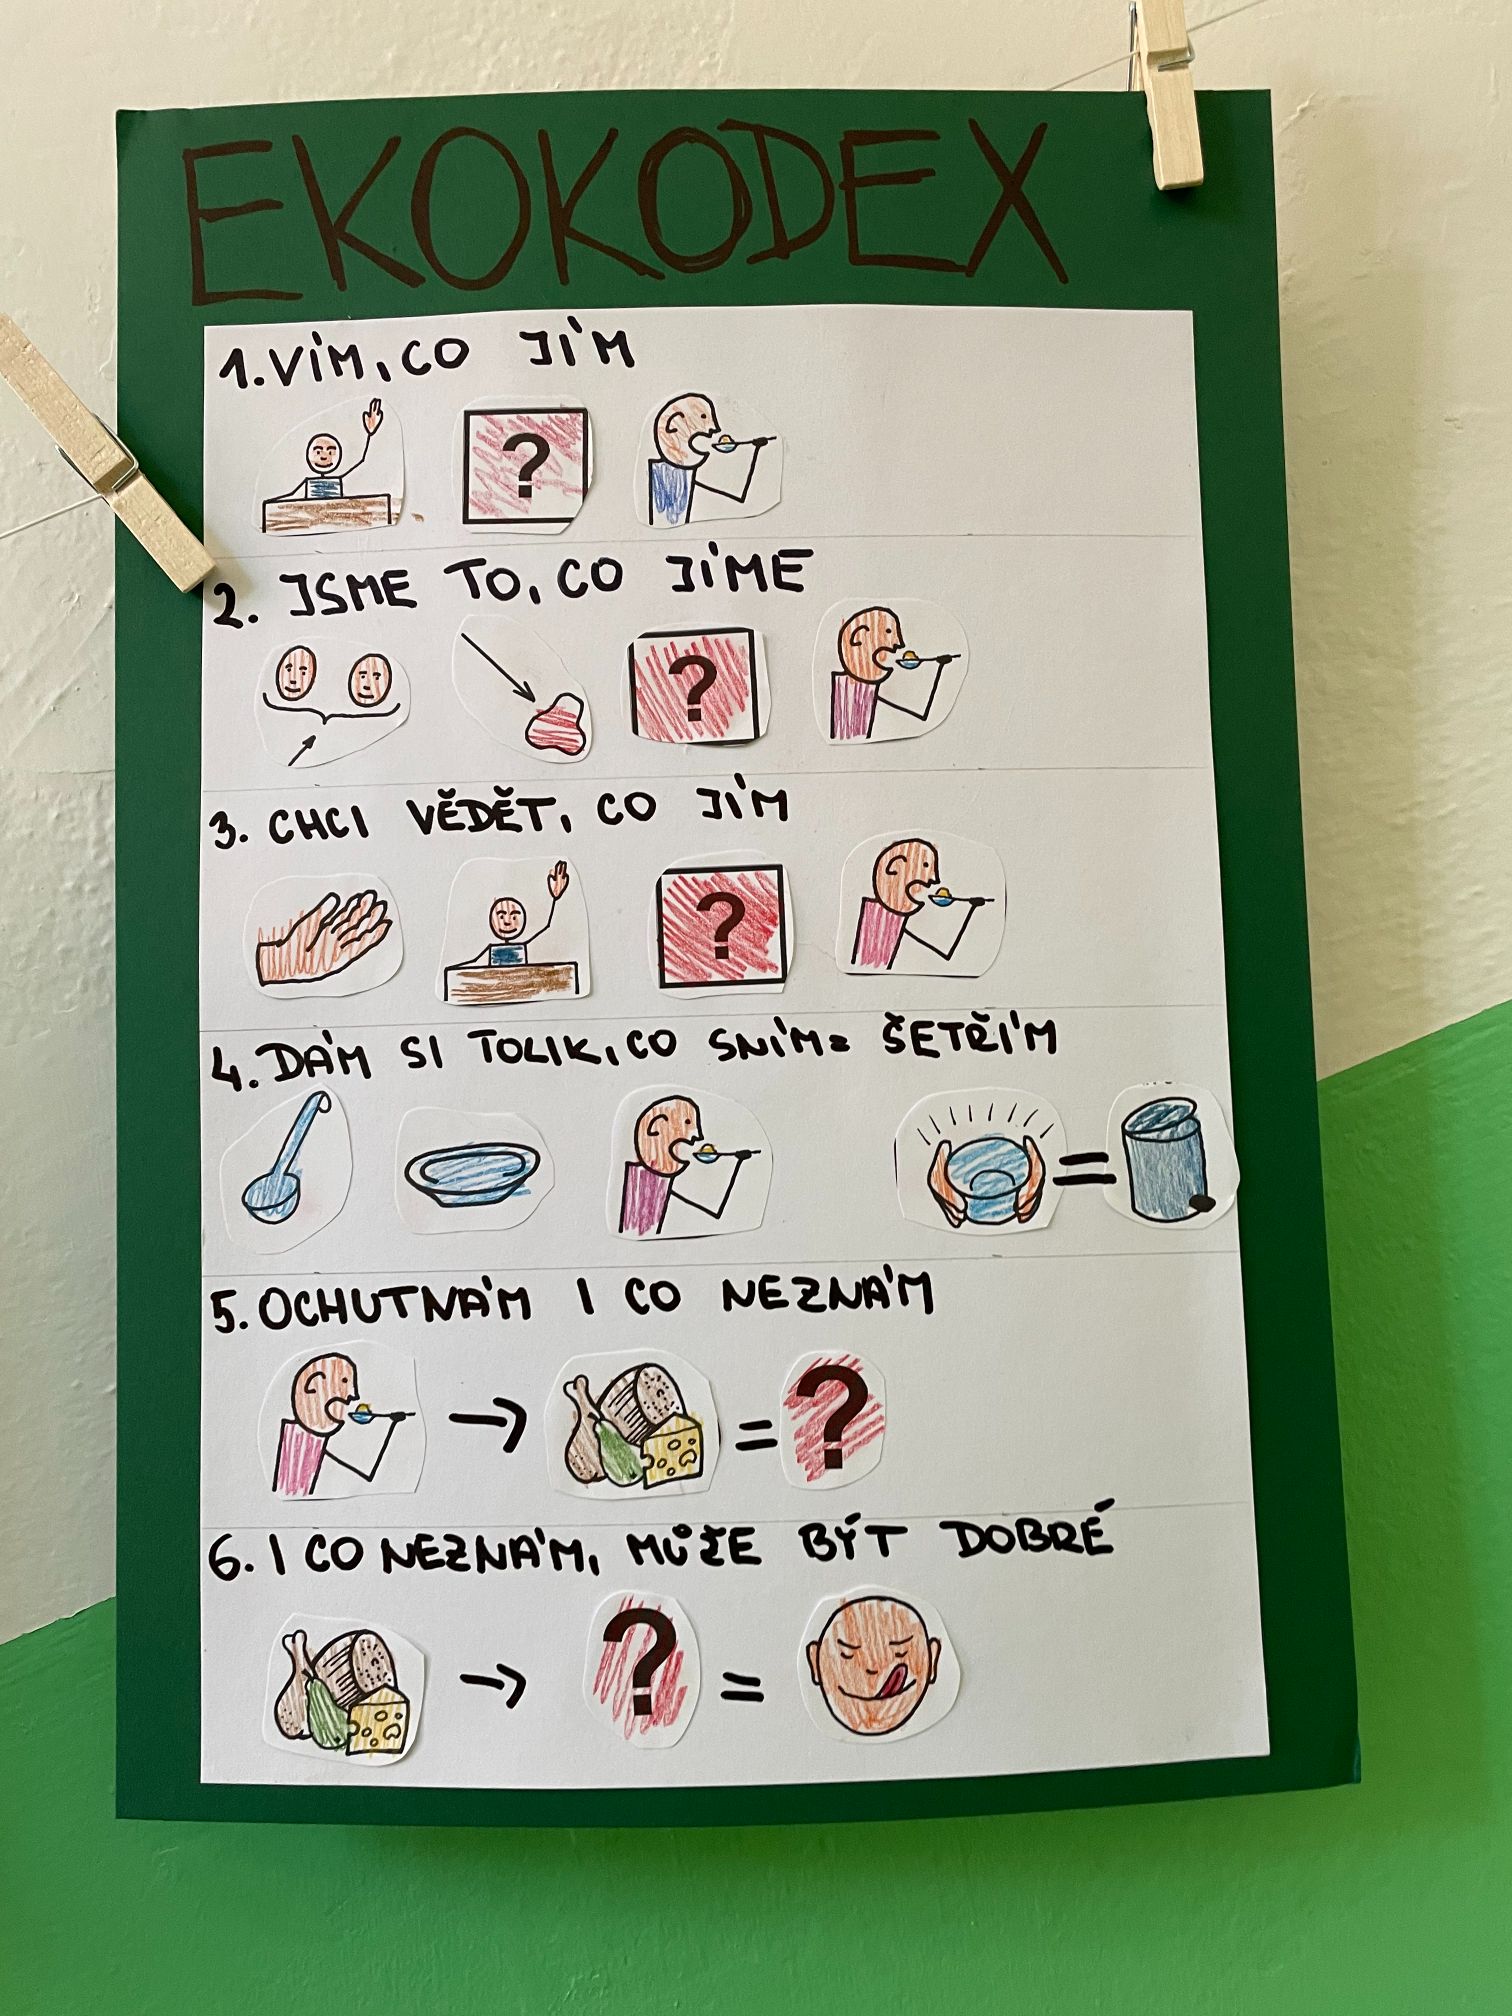 EKOKODEX
1. VÍM, CO JÍM
?
2. JSME TO, CO JÍME
?
3. CHCI VĚDĚT, CO JÍM
?
4. DÁM SI TOLIK, CO SNÍM = ŠETŘÍM
=
5. OCHUTNÁM I CO NEZNÁM
→ = ?
6. I CO NEZNÁM, MŮŽE BÝT DOBRÉ
→ ? =